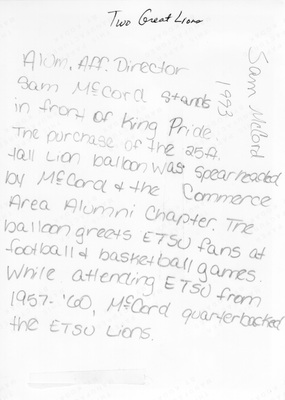 Two Great Lions
Alum. Aff. Director
Sam McCord stands
in front of King Pride.
The purchase of the 25ft.
tall Lion balloon was spearheaded
by McCord & the Commerce
Area Alumni Chapter. The
balloon greets ETSU fans at
football & basketball games.
While attending ETSU from
1957-'60, McCord quarterbacked
the ETSU Lions.
Sam McCord
1993